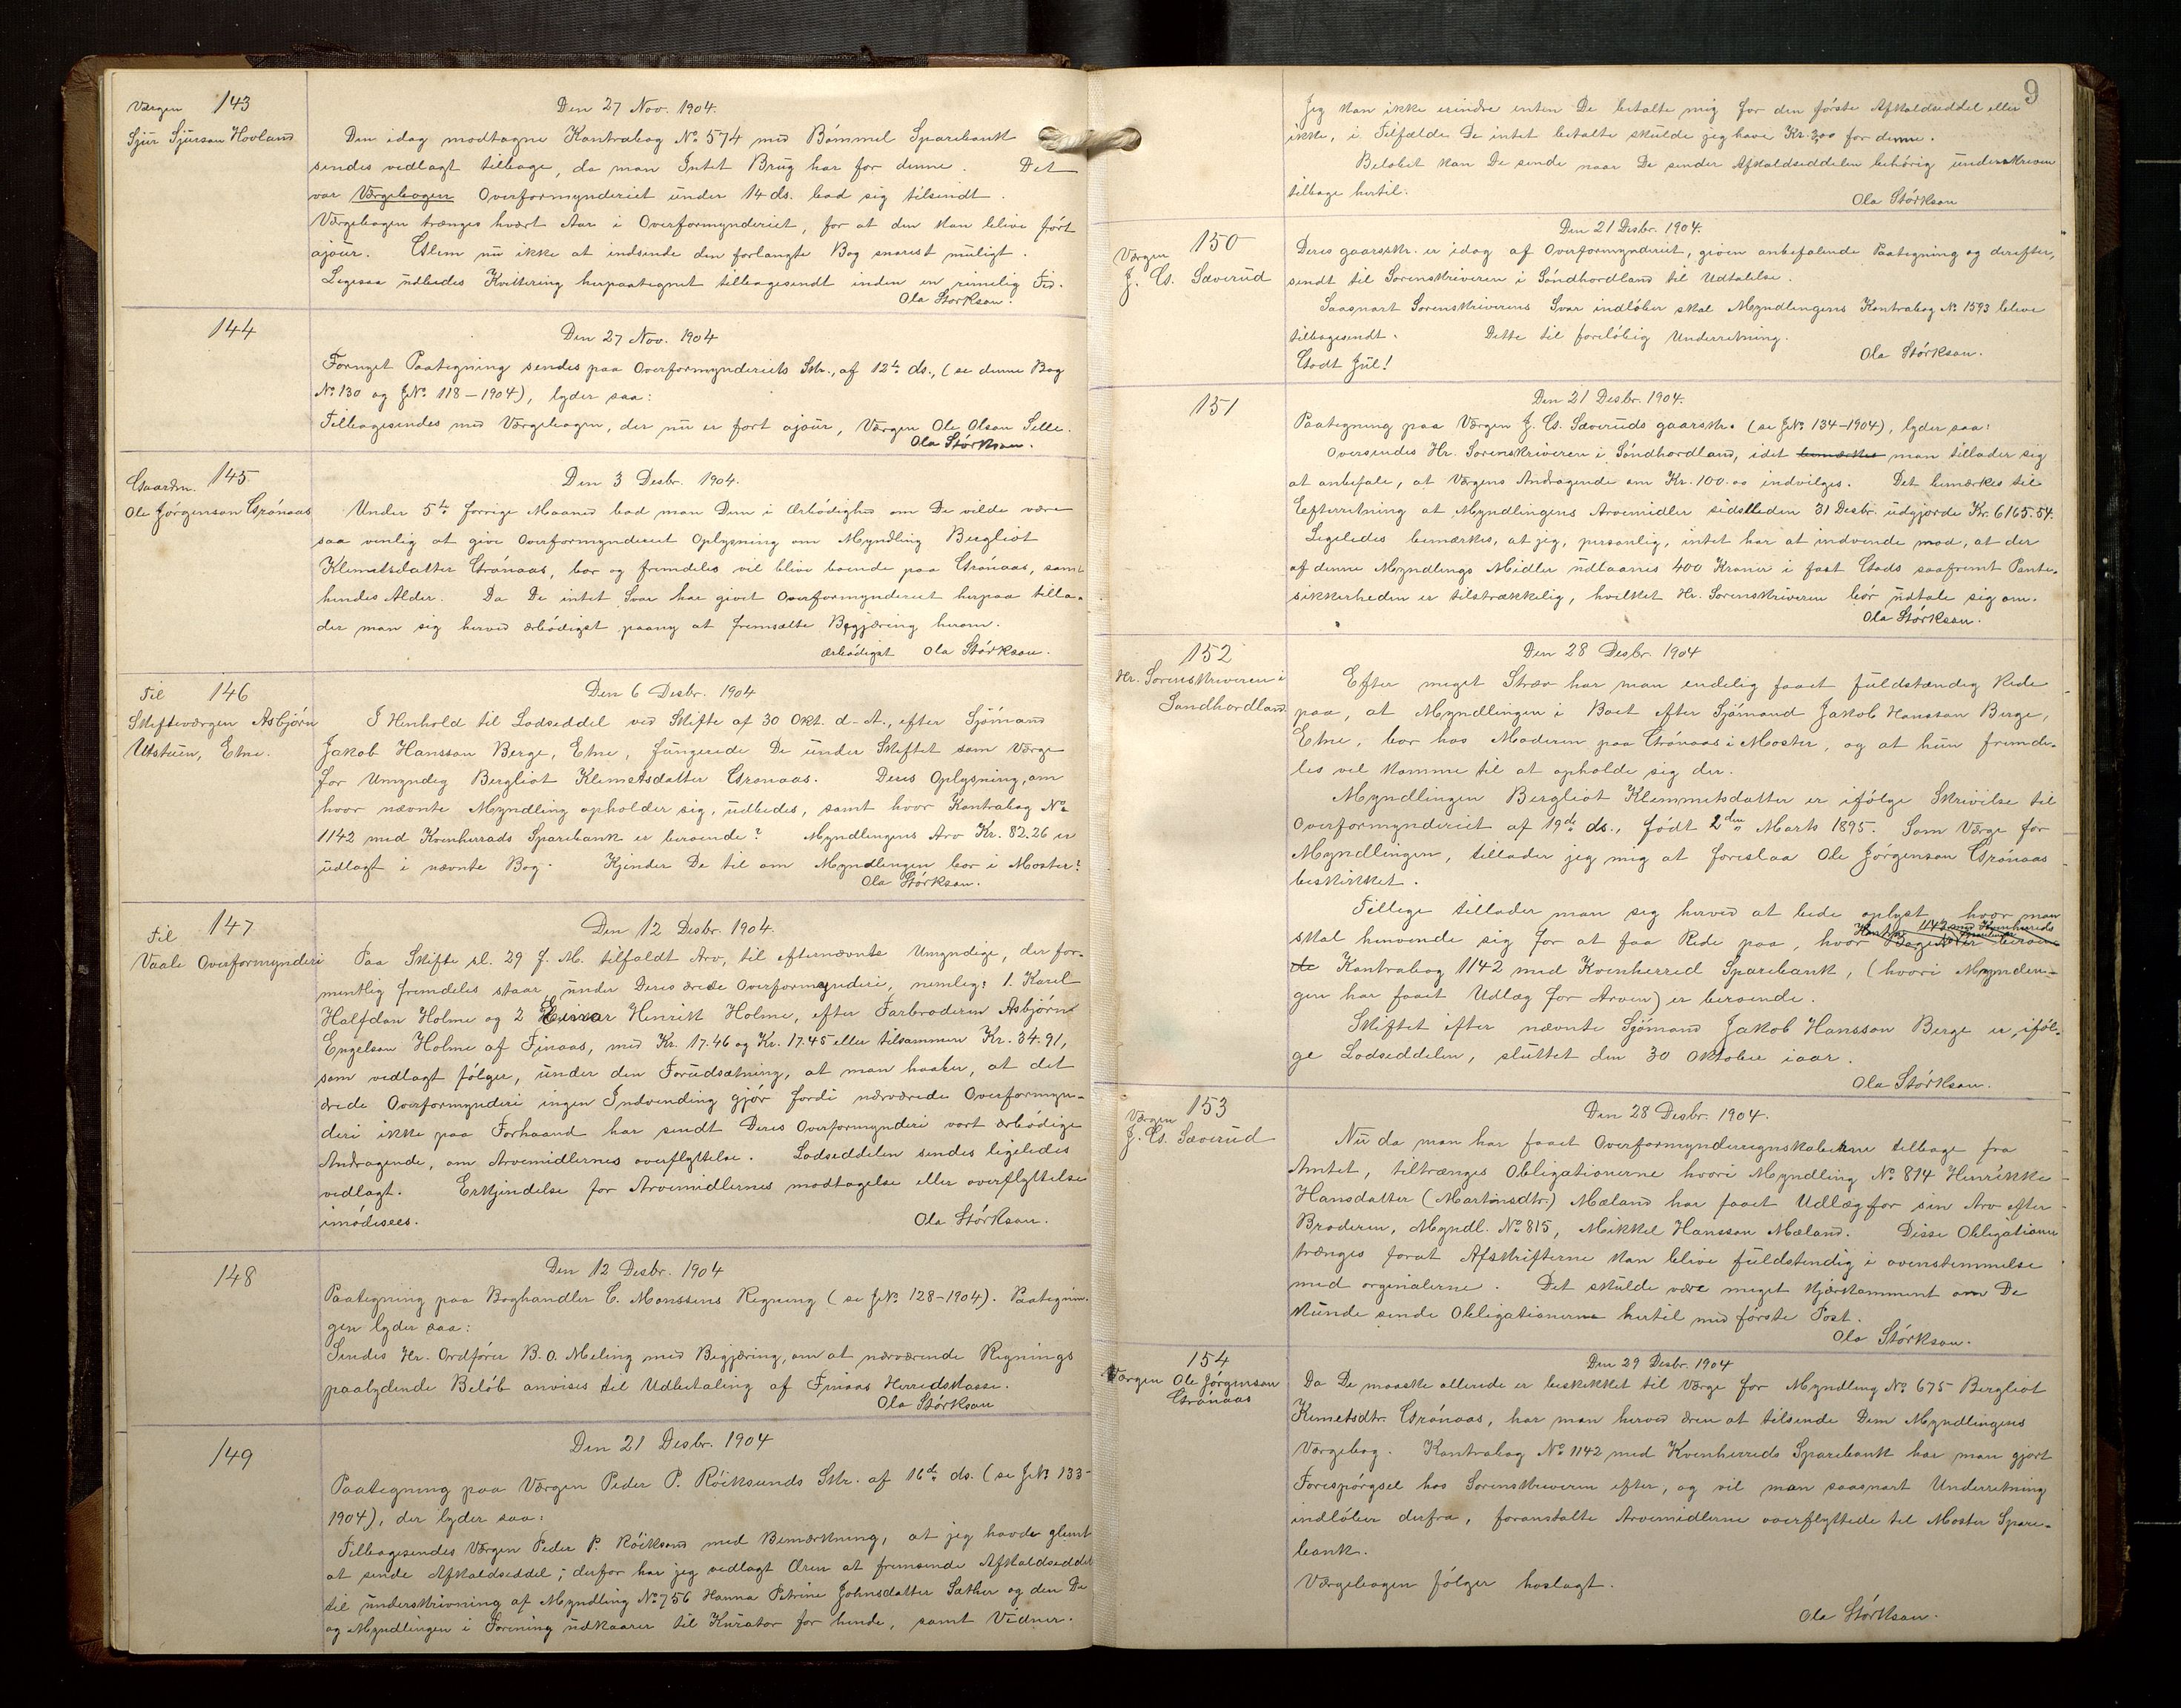 Værgen 143
Sjur Sjurson Hovland
Den 27 Nov. 1904.
Den idag modtagne Kontrabog No 574 med Bömmel Sparebank
sendes vedlagt tilbage, da man Intet Brug har for denne. Det
var Værgebogen Overformynderiet under 14 ds. bad sig tilsendt.
Værgebogen trænges hvert Aar i Overformynderiet, for at den kan blive fört
ajour. Glem nu ikke at indsende den forlangte Bog snarest muligt.
Ligesaa udbedes Kvittering herpaategnet tilbagesendt inden en rimelig Tid.
Ola Störkson.
144
Den 27 Nov. 1904
Fornyet Paategning sendes paa Overformynderiets Skr., af 12te ds., (se denne Bog
No 130 og JNo 118-1904), lyder saa:
Tilbagesendes med Værgebogen, der nu er fört ajour, Værgen Ole Olson Selle.
Ola Störkson.
145.
Gaardm.
Ole Jörgenson Grönaas
Den 3 Desbr. 1904.
Under 5te forrige Maaned bad man Dem i Ærbödighed om De vilde være
saa venlig at give Overformynderiet Oplysning om Myndling Bergliot
Klemetsdatter Grönaas, bor og fremdeles vil blive boende paa Grönaas, samt
hendes Alder. Da De intet Svar har givet Overformynderiet herpaa tilla-
der man sig herved ærbödigst paany at fremsætte Begjæring herom.
ærbödigst Ola Störkson.
Til 146
Skifteværgen Asbjörn
Utstuen, Etne.
Den 6 Desbr. 1904
I Henhold til Lodseddel ved Skifte af 30 Okt. d. A., efter Sjömand
Jakob Hansson Berge, Etne, fungerede De under Skiftet som Værge
for Umyndig Bergliot Klemetsdatter Grönaas. Deres Oplysning, om
hvor nævnte Myndling opholder sig, udbedes, samt hvor Kontrabog No
1142 med Kvenherrads Sparebank er beroende? Myndlingens Arv Kr. 82.26 er
udlagt i nævnte Bog. Kjender De til om Myndlingen bor i Moster?
Ola Störkson.
Til 147
Vaale Overformynderi
Den 12 Desbr. 1904.
Paa Skifte sl. 29 f. M. tilfaldt Arv, til efternævnte Umyndige, der for-
mentlig fremdeles staar under Deres ærede Overformynderi, nemlig: 1. Karel
Halfdan Holme og 2 Einar Henrik Holme, efter Farbroderen Asbjörn
Engelson Holme af Finaas, med Kr. 17.46 og Kr. 17.45 eller tilsammen Kr. 34.91,
som vedlagt fölger, under den Forudsætning, at man haaber, at det
ærede Overformynderi ingen Indvending gjör fordi nærværede Overformyn-
deri ikke paa Forhaand har sendt Deres Overformynderi vort ærbödige
Andragende, om Arvemidlernes overflyttelse. Lodseddelen sendes ligeledes
vedlagt. Erkjendelse for Arvemidlernes modtagelse eller overflyttelse
imödesees. Ola Störkson.
148
Den 12 Desbr. 1904
Paategning paa Boghandler C. Monssens Regning (se JNo 128-1904). Paategnin-
gen lyder saa:
Sendes Hr. Ordförer B. O. Meling med Begjæring, om at nærværende Regnings
paalydende Belöb anvises til Udbetaling af Finaas Herredskasse.
Ola Störkson
149
Den 21 Desbr. 1904
Paategning paa Værgen Peder P. Röiksunds Skr. af 16de ds. (se JNo 133-
1904), der lyder saa:
Tilbagesendes Værgen Peder P. Röiksund med Bemærkning, at jeg havde glemt
at sende Afkaldseddel; derfor har jeg vedlagt Æren at fremsende Afkaldseddel
til underskrivning af Myndling No 756 Hanna Petrine Johnsdatter Sæther og den De
og Myndlingen i Forening udkaarer til Kurator for hende, samt Vidner.
9
Jeg kan ikke erindre enten De betalte mig for den förste Afkaldseddel eller
ikke, i Tilfælde De intet betalte skulde jeg have Kr. 2,00 for denne.
Belöbet kan De sende naar De sender Afkaldseddelen behörig underskreven
tilbage hertil.
Ola Störkson
150
Værgen
J. Cs. Sæverud
Den 21 Desbr. 1904.
Deres gaarsskr. er idag af Overformynderiet, given anbefalende Paategning og derefter,
sendt til Sorenskriveren i Söndhordland til Udtalelse.
Saasnart Sorenskriverens Svar indlöber skal Myndlingens Kontrabog No 1593 blive
tilbagesendt. Dette til foreløbig Underretning.
Godt Jul! Ola Störkson.
151
Den 21 Desbr. 1904.
Paategning paa Værgen J. Cs. Sæveruds gaarsskr. (se JNo 134-1904), lyder saa:
Oversendes Hr. Sorenskriveren i Söndhordland, idet bemærkes man tillader sig
at anbefale, at Værgens Andragende om Kr. 100.00 indvilges. Det bemærkes til
Eefterretning at Myndlingens Arvemidler sidstleden 31 Desbr. udgjorde Kr. 6165.54.
Ligeledes bemærkes, at jeg, personlig, intet har at indvende mod, at der
af denne Myndlings Midler udlaanes 400 Kroner i fast Gods saafremt Pante-
sikkerheden er tilstrækkelig, hvilket Hr. Sorenskriveren bör udtale sig om.
Ola Störkson.
152
Hr. Sorenskriveren i
Söndhordland
Den 28 Desbr. 1904
Efter meget Stræv har man endelig faaet fuldstændig Rede
paa, at Myndlingen i Boet efter Sjömand Jakob Hansson Berge,
Etne, bor hos Moderen paa Grönaas i Moster, og at hun fremde-
les vil komme til at opholde sig der.
Myndlingen Bergliot Klemmetsdatter er ifölge Skrivelse til
Overformynderiet af 19de ds., födt 2den Marts 1895. Som Værge for
Myndlingen, tillader jeg mig at foreslaa Ole Jörgenson Grönaas
beskikket.
Tillige tillader man sig herved at bede oplyst, hvor man
skal henvende sig for at faa Rede paa, hvor
Kontrabog 1142 med Kvenherred Sparebank, (hvori Mynden-
gen har faaet Udlæg for Arven) er beroende.
Skiftet efter nævnte Sjömand Jakob Hansson Berge er, iföl-
ge Lodseddelen, sluttet den 30 Oktober iaar.
Ola Störkson.
153
Værgen
J. Cs. Sæverud
Den 28 Desbr. 1904.
Nu da man har faaet Overformynderregnskaberne tilbage fra
Amtet, tiltrænges Obligationerne hvori Myndling No 814 Henrikke
Hansdatter (Martinsdtr.) Mæland har faaet Udlæg for sin Arv efter
Broderen, Myndl. No 815, Mikkel Hansson Mæland. Disse Obligationer
trænges forat Afskrifterne kan blive fuldstendig i ovenstemmelse
med orginalerne. Det skulde være meget kjærkomment om De
kunde sende Obligationerne hertil med förste Post.
Ola Störkson.
154
Værgen Ole Jörgenson
Grönaas
Den 29 Desbr. 1904
Da De maaske allerede er beskikket til Værge for Myndling No 675 Bergliot
Kemetsdtr. Grönaas, har man herved æren at tilsende Dem Myndlingens
Værgebog. Kontrabog No 1142 med Kvenherreds Sparebank har man gjort
Forespörgsel hos Sorenskriveren efter, og vil man saasnart Underretning
indlöber derfra, foranstalte Arvemidlerne overflyttede til Moster Spare-
bank.
Værgebogen fölger hoslagt.
Ola Störkson.